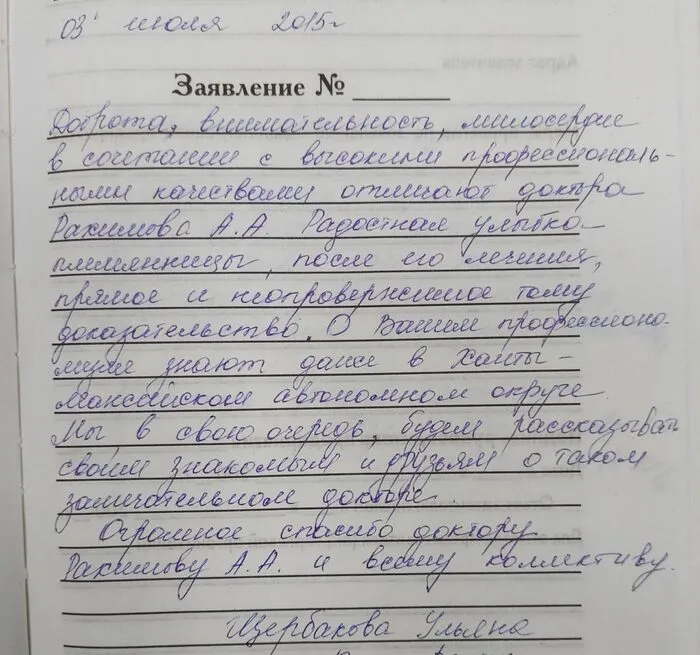 03 июля 2015г
Заявление №
Доброта, внимательность, милосердие
в сочетании с высокими профессиональ-
ными качествами отличают доктора
Рахимова А.А. Радостная улыбка
племянницы, после его лечения,
прямое и неопровержимое тому
доказательство. О Вашем профессиона-
лизме знают даже в Ханты-
Мансийском автономном округе.
Мы в свою очередь, будем рассказывать
своим знакомым и друзьям о таком
замечательном докторе.
Огромное спасибо доктору
Рахимову А.А. и всему коллективу.
Щербакова Ульяна